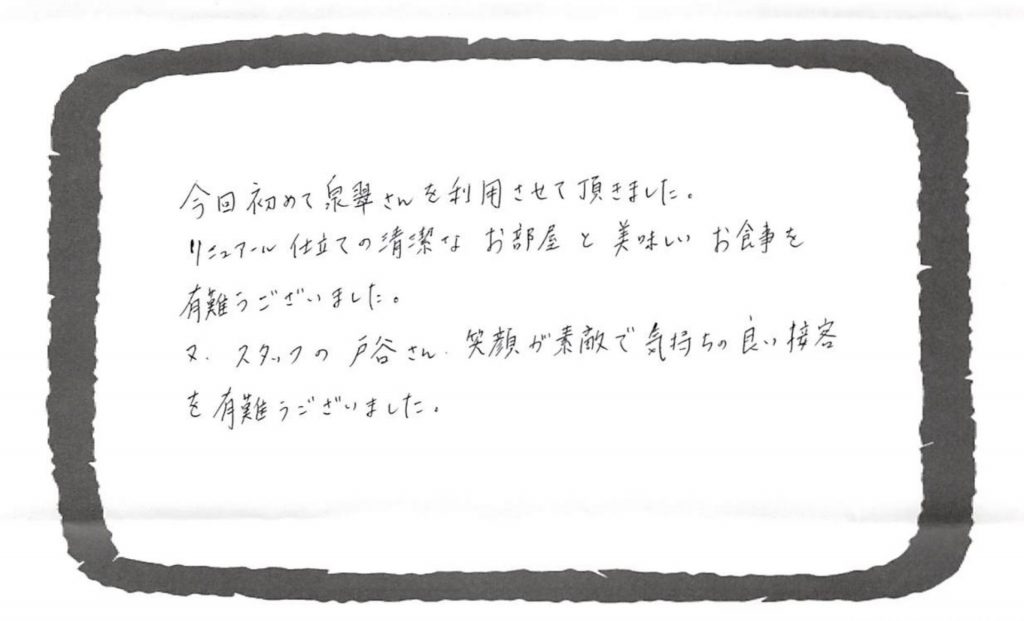 今回初めて泉翠さんを利用させて頂きました。
リニュアール仕立ての清潔なお部屋と美味しいお食事を
有難うございました。
又、スタッフの戸谷さん、笑顔が素敵で気持ちの良い接客
を有難うございました。